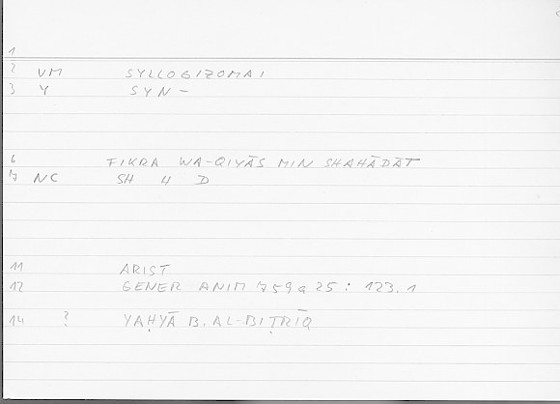 1
2 VM SYLLOGIZOMAI
3 Y SYN -
6 FIKRA WA-QIYĀS MIN SHAHĀDĀT
7 NC SH H D
11 ARIST
12 GENER ANIM 759a25: 123.1
14 ? YAḤYĀ B. AL-BIṬRĪQ